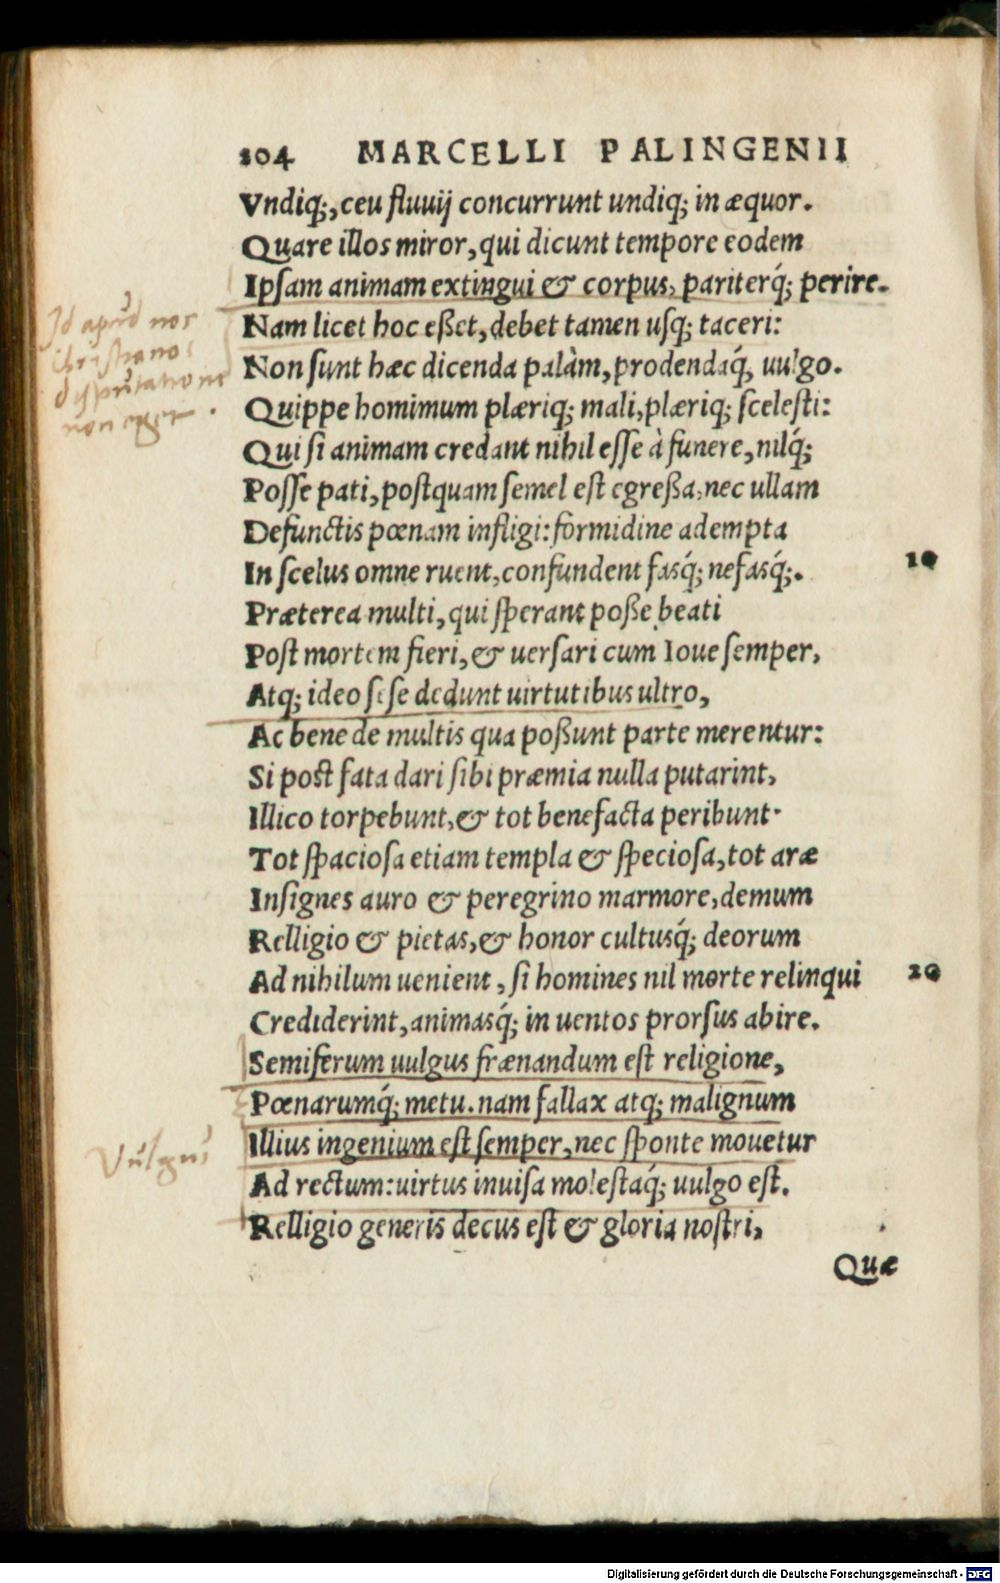 104 MARCELLI PALINGENII
Vndiq;, ceu fluuij concurrunt undiq; in æquor.
Quare illos miror, qui dicunt tempore eodem
Ipsam animam extingui & corpus, pariterq́; perire.
Id apud nos
Christianos
disputatione
non eget.
Nam licet hoc eßet, debet tamen usq; taceri:
Non sunt hæc dicenda palàm, prodendaq́, uulgo.
Quippe homimum plæriq; mali, plæriq; scelesti:
Qui si animam credant nihil esse à funere, nilq́;
Posse pati, postquam semel est egreßa, nec ullam
Defunctis pœnam infligi: formidine adempta
In scelus omne ruent, confundent fasq́; nefasq́;. 10
Præterea multi, qui sperant poße beati
Post mortem fieri, & uersari cum Ioue semper,
Atq; ideo sese dedunt uirtutibus ultro,
Ac bene de multis qua poßunt parte merentur:
Si post fata dari sibi præmia nulla putarint,
Illico torpebunt, & tot benefacta peribunt.
Tot spaciosa etiam templa & speciosa, tot aræ
Insignes auro & peregrino marmore, demum
Relligio & pietas, & honor cultusq́; deorum
Ad nihilum uenient, si homines nil morte relinqui 20
Crediderint, animasq́; in uentos prorsus abire.
Semiferum uulgus frænandum est religione,
Pœnarumq́; metu. nam fallax atq; malignum
Vulgus
Illius ingenium est semper, nec sponte mouetur
Ad rectum: uirtus inuisa molestaq́; uulgo est.
Relligio generis decus est & gloria nostri,
Quæ
Digitalisierung gefördert durch die Deutsche Forschungsgemeinschaft - DFG